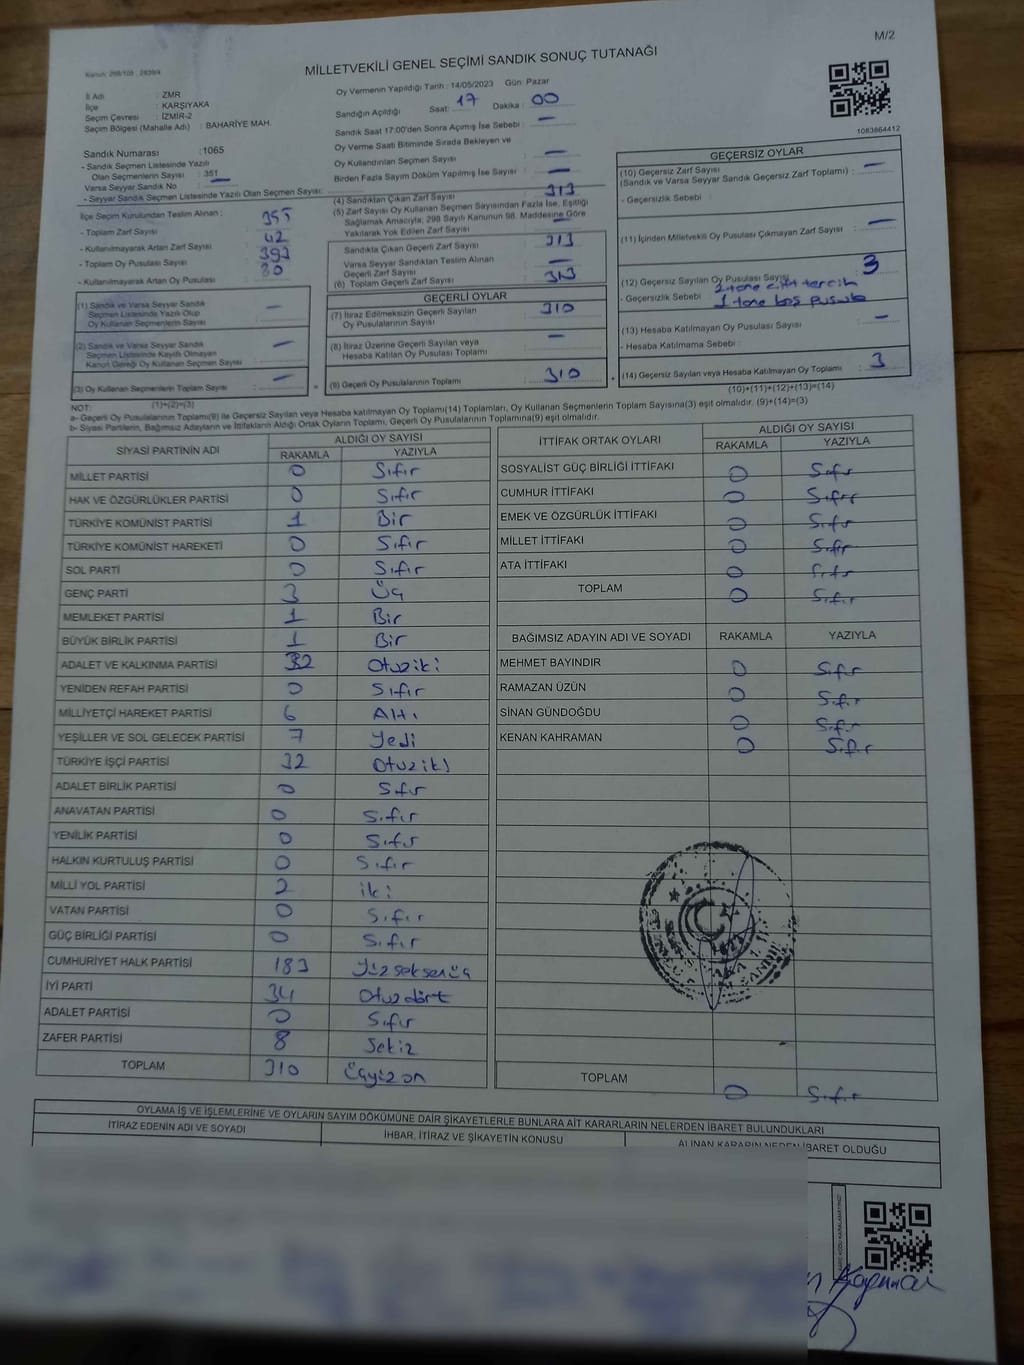 M/2
Kanun: 298/105 , 2839/4
MİLLETVEKİLİ GENEL SEÇİMİ SANDIK SONUÇ TUTANAĞI
İl Adı : ZMR
İlçe : KARŞIYAKA
Seçim Çevresi : İZMİR-2
Seçim Bölgesi (Mahalle Adı) : BAHARİYE MAH.
Oy Vermenin Yapıldığı Tarih : 14/05/2023 Gün: Pazar
Sandığın Açıldığı Saat: 17 Dakika : 00
Sandık Saat 17:00'den Sonra Açımış İse Sebebi : —
Oy Verme Saati Bitiminde Sırada Bekleyen ve
Oy Kullandırılan Seçmen Sayısı : —
Birden Fazla Sayım Döküm Yapılmış İse Sayısı : —
1083864412
Sandık Numarası : 1065
- Sandık Seçmen Listesinde Yazılı
Olan Seçmenlerin Sayısı : 351
Varsa Seyyar Sandık No : —
- Seyyar Sandık Seçmen Listesinde Yazılı Olan Seçmen Sayısı:
İlçe Seçim Kurulundan Teslim Alınan :
- Toplam Zarf Sayısı : 355
- Kullanılmayarak Artan Zarf Sayısı : 42
- Toplam Oy Pusulası Sayısı : 393
- Kullanılmayarak Artan Oy Pusulası : 80
(1) Sandık ve Varsa Seyyar Sandık
Seçmen Listesinde Yazılı Olup
Oy Kullanan Seçmenlerin Sayısı : —
(2) Sandık ve Varsa Seyyar Sandık
Seçmen Listesinde Kayıtlı Olmayan
Kanun Gereği Oy Kullanan Seçmen Sayısı : —
(3) Oy Kullanan Seçmenlerin Toplam Sayısı : —
(1)+(2)=(3)
(4) Sandıktan Çıkan Zarf Sayısı : 313
(5) Zarf Sayısı Oy Kullanan Seçmen Sayısından Fazla İse, Eşitliği
Sağlamak Amacıyla, 298 Sayılı Kanunun 98. Maddesine Göre
Yakılarak Yok Edilen Zarf Sayısı : —
Sandıkta Çıkan Geçerli Zarf Sayısı : 313
Varsa Seyyar Sandıktan Teslim Alınan
Geçerli Zarf Sayısı : —
(6) Toplam Geçerli Zarf Sayısı : 313
GEÇERLİ OYLAR
(7) İtiraz Edilmeksizin Geçerli Sayılan
Oy Pusulalarının Sayısı : 310
(8) İtiraz Üzerine Geçerli Sayılan veya
Hesaba Katılan Oy Pusulası Toplamı : —
(9) Geçerli Oy Pusulalarının Toplamı : 310
GEÇERSİZ OYLAR
(10) Geçersiz Zarf Sayısı : —
(Sandık ve Varsa Seyyar Sandık Geçersiz Zarf Toplamı) :
- Geçersizlik Sebebi :
(11) İçinden Milletvekili Oy Pusulası Çıkmayan Zarf Sayısı : —
(12) Geçersiz Sayılan Oy Pusulası Sayısı : 3
- Geçersizlik Sebebi : 2 tane çift tercih
1 tane boş pusula
(13) Hesaba Katılmayan Oy Pusulası Sayısı : —
- Hesaba Katılmama Sebebi :
(14) Geçersiz Sayılan veya Hesaba Katılmayan Oy Toplamı : 3
(10)+(11)+(12)+(13)=(14)
NOT:
a- Geçerli Oy Pusulalarının Toplamı(9) ile Geçersiz Sayılan veya Hesaba katılmayan Oy Toplamı(14) Toplamları, Oy Kullanan Seçmenlerin Toplam Sayısına(3) eşit olmalıdır. (9)+(14)=(3)
b- Siyasi Partilerin, Bağımsız Adayların ve İttifakların Aldığı Ortak Oyların Toplamı, Geçerli Oy Pusulalarının Toplamına(9) eşit olmalıdır.
SİYASİ PARTİNİN ADI ALDIĞI OY SAYISI
RAKAMLA YAZIYLA
MİLLET PARTİSİ 0 Sıfır
HAK VE ÖZGÜRLÜKLER PARTİSİ 0 Sıfır
TÜRKİYE KOMÜNİST PARTİSİ 1 Bir
TÜRKİYE KOMÜNİST HAREKETİ 0 Sıfır
SOL PARTİ 0 Sıfır
GENÇ PARTİ 3 Üç
MEMLEKET PARTİSİ 1 Bir
BÜYÜK BİRLİK PARTİSİ 1 Bir
ADALET VE KALKINMA PARTİSİ 32 Otuziki
YENİDEN REFAH PARTİSİ 0 Sıfır
MİLLİYETÇİ HAREKET PARTİSİ 6 Altı
YEŞİLLER VE SOL GELECEK PARTİSİ 7 Yedi
TÜRKİYE İŞÇİ PARTİSİ 32 Otuziki
ADALET BİRLİK PARTİSİ 0 Sıfır
ANAVATAN PARTİSİ 0 Sıfır
YENİLİK PARTİSİ 0 Sıfır
HALKIN KURTULUŞ PARTİSİ 0 Sıfır
MİLLİ YOL PARTİSİ 2 iki
VATAN PARTİSİ 0 Sıfır
GÜÇ BİRLİĞİ PARTİSİ 0 Sıfır
CUMHURİYET HALK PARTİSİ 183 Yüzseksenüç
İYİ PARTİ 34 Otuzdört
ADALET PARTİSİ 0 Sıfır
ZAFER PARTİSİ 8 Sekiz
TOPLAM 310 Üçyüzon
İTTİFAK ORTAK OYLARI ALDIĞI OY SAYISI
RAKAMLA YAZIYLA
SOSYALİST GÜÇ BİRLİĞİ İTTİFAKI 0 Sıfır
CUMHUR İTTİFAKI 0 Sıfır
EMEK VE ÖZGÜRLÜK İTTİFAKI 0 Sıfır
MİLLET İTTİFAKI 0 Sıfır
ATA İTTİFAKI 0 Sıfır
TOPLAM 0 Sıfır
BAĞIMSIZ ADAYIN ADI VE SOYADI RAKAMLA YAZIYLA
MEHMET BAYINDIR 0 Sıfır
RAMAZAN ÜZÜN 0 Sıfır
SİNAN GÜNDOĞDU 0 Sıfır
KENAN KAHRAMAN 0 Sıfır
TOPLAM 0 Sıfır
OYLAMA İŞ VE İŞLEMLERİNE VE OYLARIN SAYIM DÖKÜMÜNE DAİR ŞİKAYETLERLE BUNLARA AİT KARARLARIN NELERDEN İBARET BULUNDUKLARI
İTİRAZ EDENİN ADI VE SOYADI İHBAR, İTİRAZ VE ŞİKAYETİN KONUSU ALINAN KARARIN NEDEN İBARET OLDUĞU